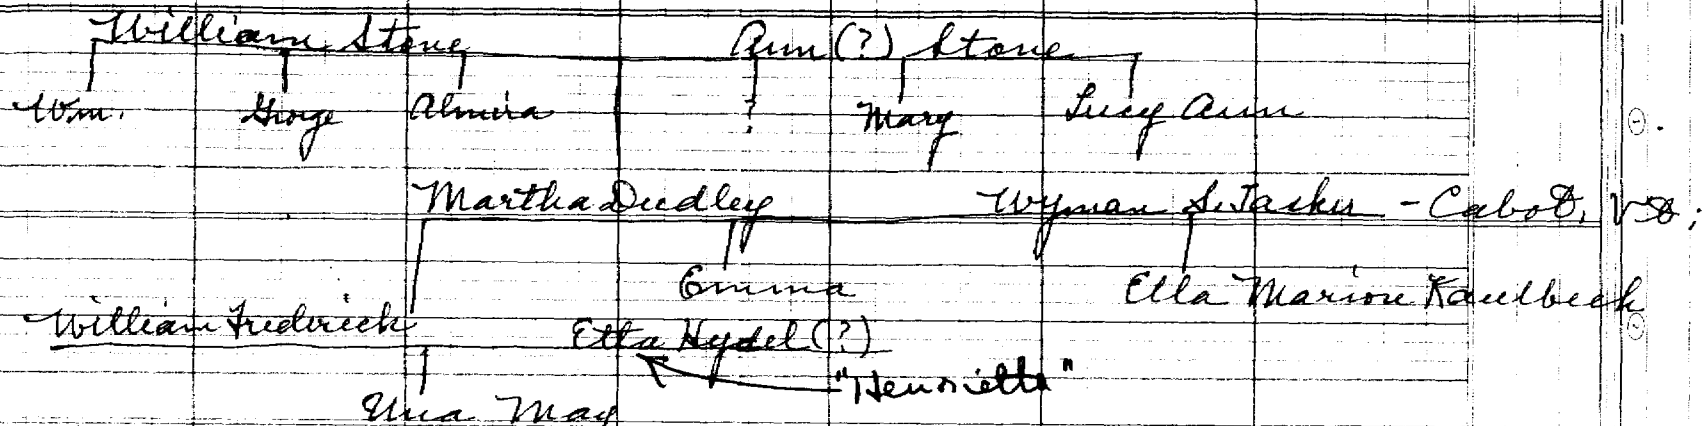 William Stone Ann (?) Stone
Wm. George Almira ? Mary Lucy Ann
Martha Dudley Wyman S. Tasker - Cabot, Vt;
Emma Ella Marion Kaulbeck
William Frederick Etta Hydel (?)
"Henrietta"
Una May